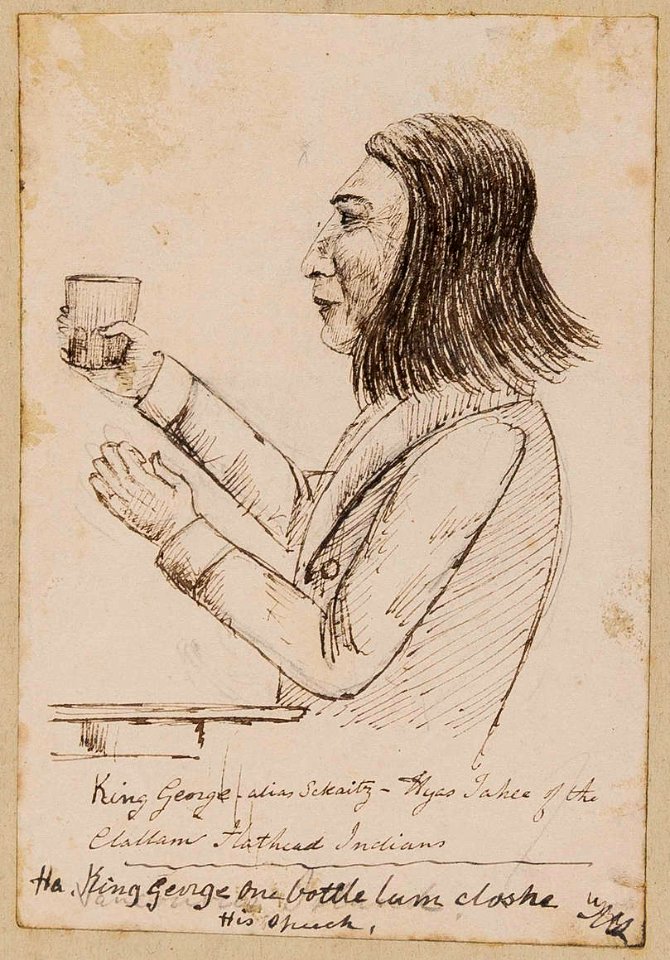 King George alias Sckaitz - Hyas Tahee of the
Clallam Flathead Indians
Ha. King George one bottle lum closhe
His speech.